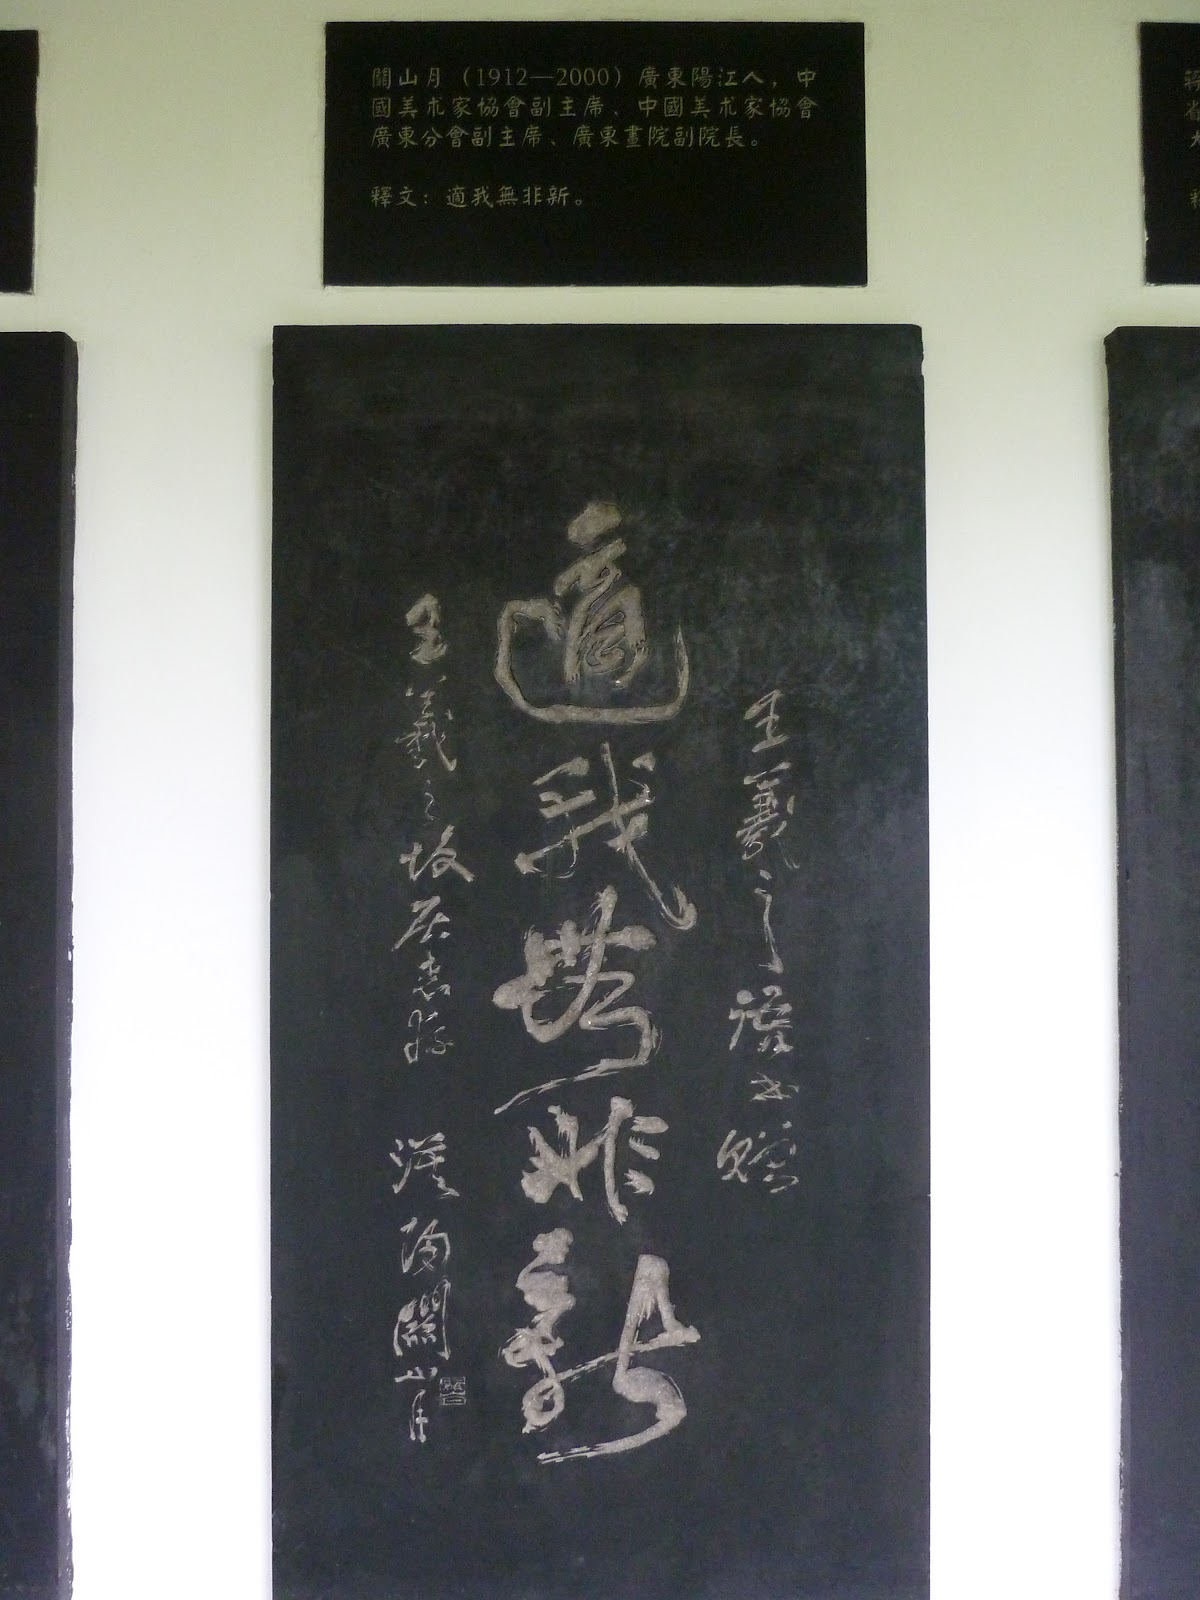 關山月（1912—2000）廣東陽江人，中
國美术家協會副主席、中國美术家協會
廣東分會副主席、廣東畫院副院長。
釋文：適我無非新。
王羲之語書贈
適我無非新
王羲之故居惠存 漠陽關山月